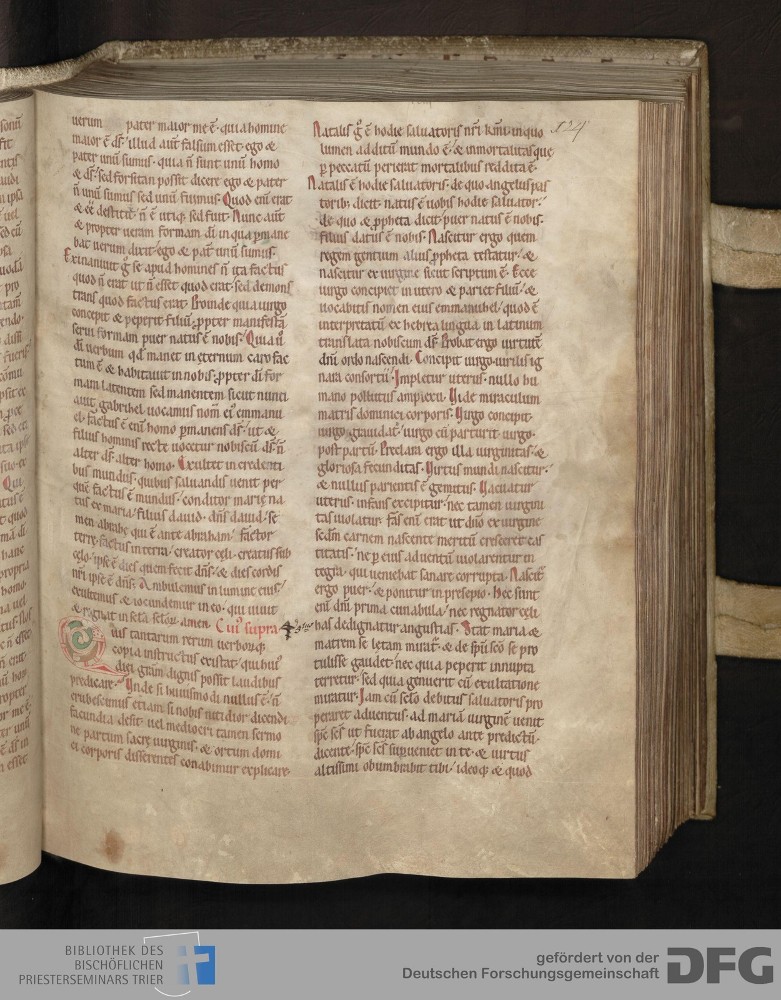 uerum pater maior me ē· quia homine
maior ē ds̄· illud aut̄ falsum esset· ego &
pater unū sumus· quia n̄ sunt unū homo
& ds̄· sed forsitan possit dicere ego & pater
n̄ unū sumus sed unū fuimus· Quod eni erat
& ēē destitit· n̄ ē utiq; sed fuit· Nunc aut̄
& propter ueram formam di in qua p̱mane
bat uerum dixit· ego & pat̄ unū sumus·
Exinaniuit g̊ se apud homines n̄ ita factus
quod n̄ erat ut n̄ esset quod erat· sed demons
trans quod factus erat· Proinde quia uirgo
concepit & peperit filiū· p̱pter manifestā
serui formam puer natus ē nobis· Quia ū
di uerbum qd̄ manet in eternum caro fac
tum ē & habitauit in nobis· p̱pter di for
mam latentem sed manentem sicut nunci
auit gabrihel uocamus nom̄ ei' emmanu
el· factus ē eni homo p̱manens ds̄· ut &
filius hominis recte uocetur nobiscū ds̄· n̄
alter ds̄ alter homo· Exultet in credenti
bus mundus· quibus saluandis uenit per
quē factus ē mundus· conditor marie na
tus ex maria· filius dauid· dn̄s dauid· se
men abrahe qui ē ante abraham· factor
terre· factus in terra· creator celi· creatus sub
celo· ipse ē dies quem fecit dn̄s· & dies cordis
nr̄i ipse ē dn̄s· Ambulemus in lumine eius·
exultemus & iocundemur in eo· qui uiuit
& regnat in scl̄a scl̄or̄· amen· Cui' supra
Quis tantarum rerum uerborq;
copia instructus existat· qui hui'
diei gr̄am dignis possit laudibus
predicare· Unde si huiusmodi nullus ē· n̄
erubescimus etiam si nobis nitidior dicendi
facundia desit· uel mediocri tamen sermo
ne partum sacre uirginis· & ortum domi
ci corporis disserentes conabimur explicare·
124
Natalis g̊ ē hodie saluatoris nr̄i in quo
lumen additū mundo ē· & inmortalitas que
p̱ peccatū perierat mortalibus reddita ē·
Natalis ē hodie saluatoris· de quo angelus pas
torib; dicit· natus ē uobis hodie saluator·
de quo & p̱pheta dicit· puer natus ē nobis·
filius datus ē nobis· Nascitur ergo quem
regem gentium alius p̱pheta testatur· &
nascitur ex uirgine sicut scriptum ē· Ecce
uirgo concipiet in utero & pariet filiū· &
uocabitis nomen eius emmanuhel· quod ē
interpretatū ex hebrea lingua in latinum
translata nobiscum ds̄· Probat ergo uirtutē
dn̄i ordo nascendi· Concipit uirgo uirilis ig
nara consortii· Impletur uterus· nullo hu
mano pollutus amplexu· Uide miraculum
matris dominici corporis· Uirgo concipit·
uirgo grauidat̄· uirgo cū parturit· uirgo
post partū· Preclara ergo illa uirginitas· &
gloriosa fecunditas· Uirtus mundi nascitur·
& nullus parientis ē gemitus· Uacuatur
uterus· infans excipitur· nec tamen uirgini
tas uiolatur· fas eni erat ut dn̄o ex uirgine
sedm̄ carnem nascente meritū cresceret cas
titatis· ne p̱ eius aduentū uiolarentur in
tegra· qui ueniebat sanare corrupta· Nascit̄
ergo puer· & ponitur in presepio· Hec sunt
eni dn̄i prima cunabula· nec regnator celi
has dedignatur angustias· Stat maria &
matrem se letam mirat̄· & de sp̄u sco se pro
tulisse gaudet· nec quia peperit innupta
terretur· sed quia genuerit cū exultatione
miratur· Iam cū sclo debitus saluatoris pro
peraret aduentus· ad mariā uirginē uenit
sp̄c sc̄s ut fuerat ab angelo ante predictū·
dicente· sp̄c sc̄s superueniet in te· & uirtus
altissimi obumbrabit tibi· ideoq; & quod
BIBLIOTHEK DES
BISCHÖFLICHEN
PRIESTERSEMINARS TRIER
gefördert von der
Deutschen Forschungsgemeinschaft
DFG